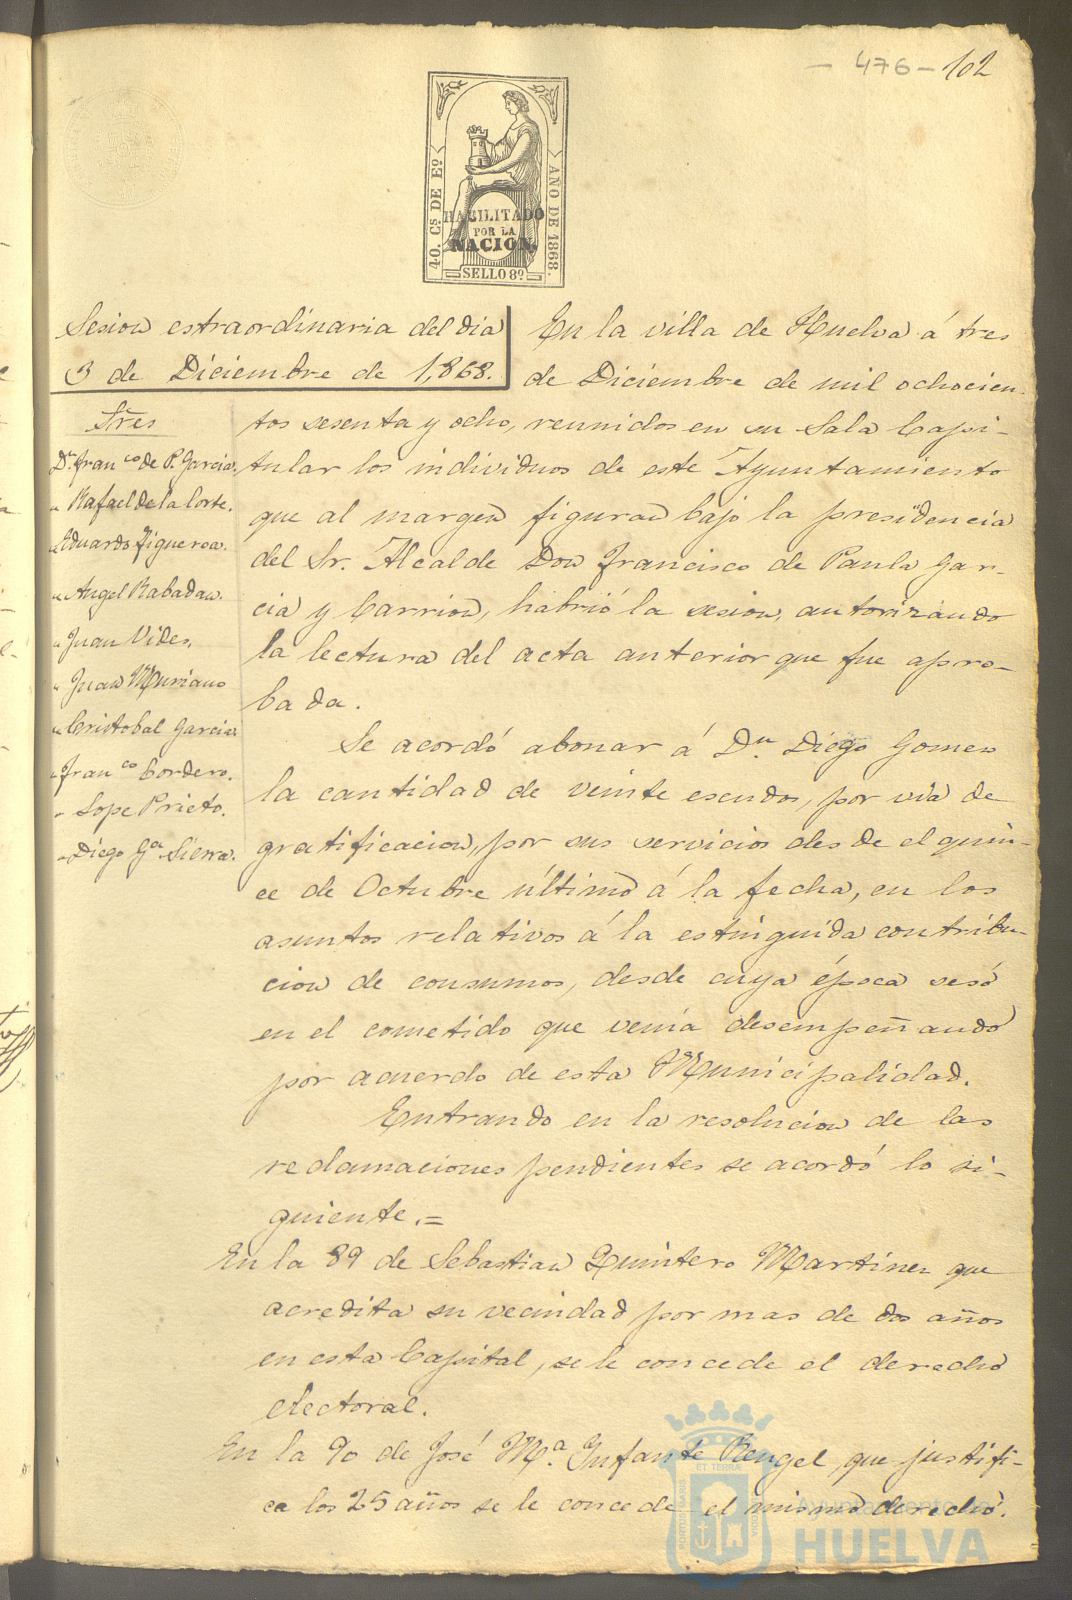 - 476 - 102
40. Cs DE Eo
AÑO DE 1868.
HABILITADO
POR LA
NACION.
SELLO 8º
Sesion estraordinaria del dia
3 de Diciembre de 1,868.
Sres
Dn. Franco de P. Garcia.
" Rafael de la Corte.
" Eduardo Figueroa.
" Angel Rabadan.
" Juan Vides.
" Juan Muriano
" Cristobal Garcia
" Franco Cordero.
" Lope Prieto.
" Diego Ga Sierra.
En la villa de Huelva á tres
de Diciembre de mil ochocien-
tos sesenta y ocho, reunidos en su Sala Capi-
tular los individuos de este Ayuntamiento
que al margen figuran bajo la presidencia
del Sr. Alcalde Don Francisco de Paula Gar-
cia y Carrion, habrió la sesion, autorizando
la lectura del acta anterior que fue apro-
bada.
Se acordó abonar á Dn. Diego Gomez
la cantidad de veinte escudos, por via de
gratificacion, por sus servicios desde el quin-
ce de Octubre último á la fecha, en los
asuntos relativos á la estinguida contribu-
cion de consumos, desde cuya época sesó
en el cometido que venia desempeñando
por acuerdo de esta Municipalidad.
Entrando en la resolucion de las
reclamaciones pendientes se acordó lo si-
guiente.=
En la 89 de Sebastian Quintero Martinez que
acredita su vecindad por mas de dos años
en esta Capital, se le concede el derecho
electoral.
En la 90 de José Mª. Infante Rengel, que justifi-
ca los 25 años se le concede el mismo derecho.
Ayuntamiento de
HUELVA